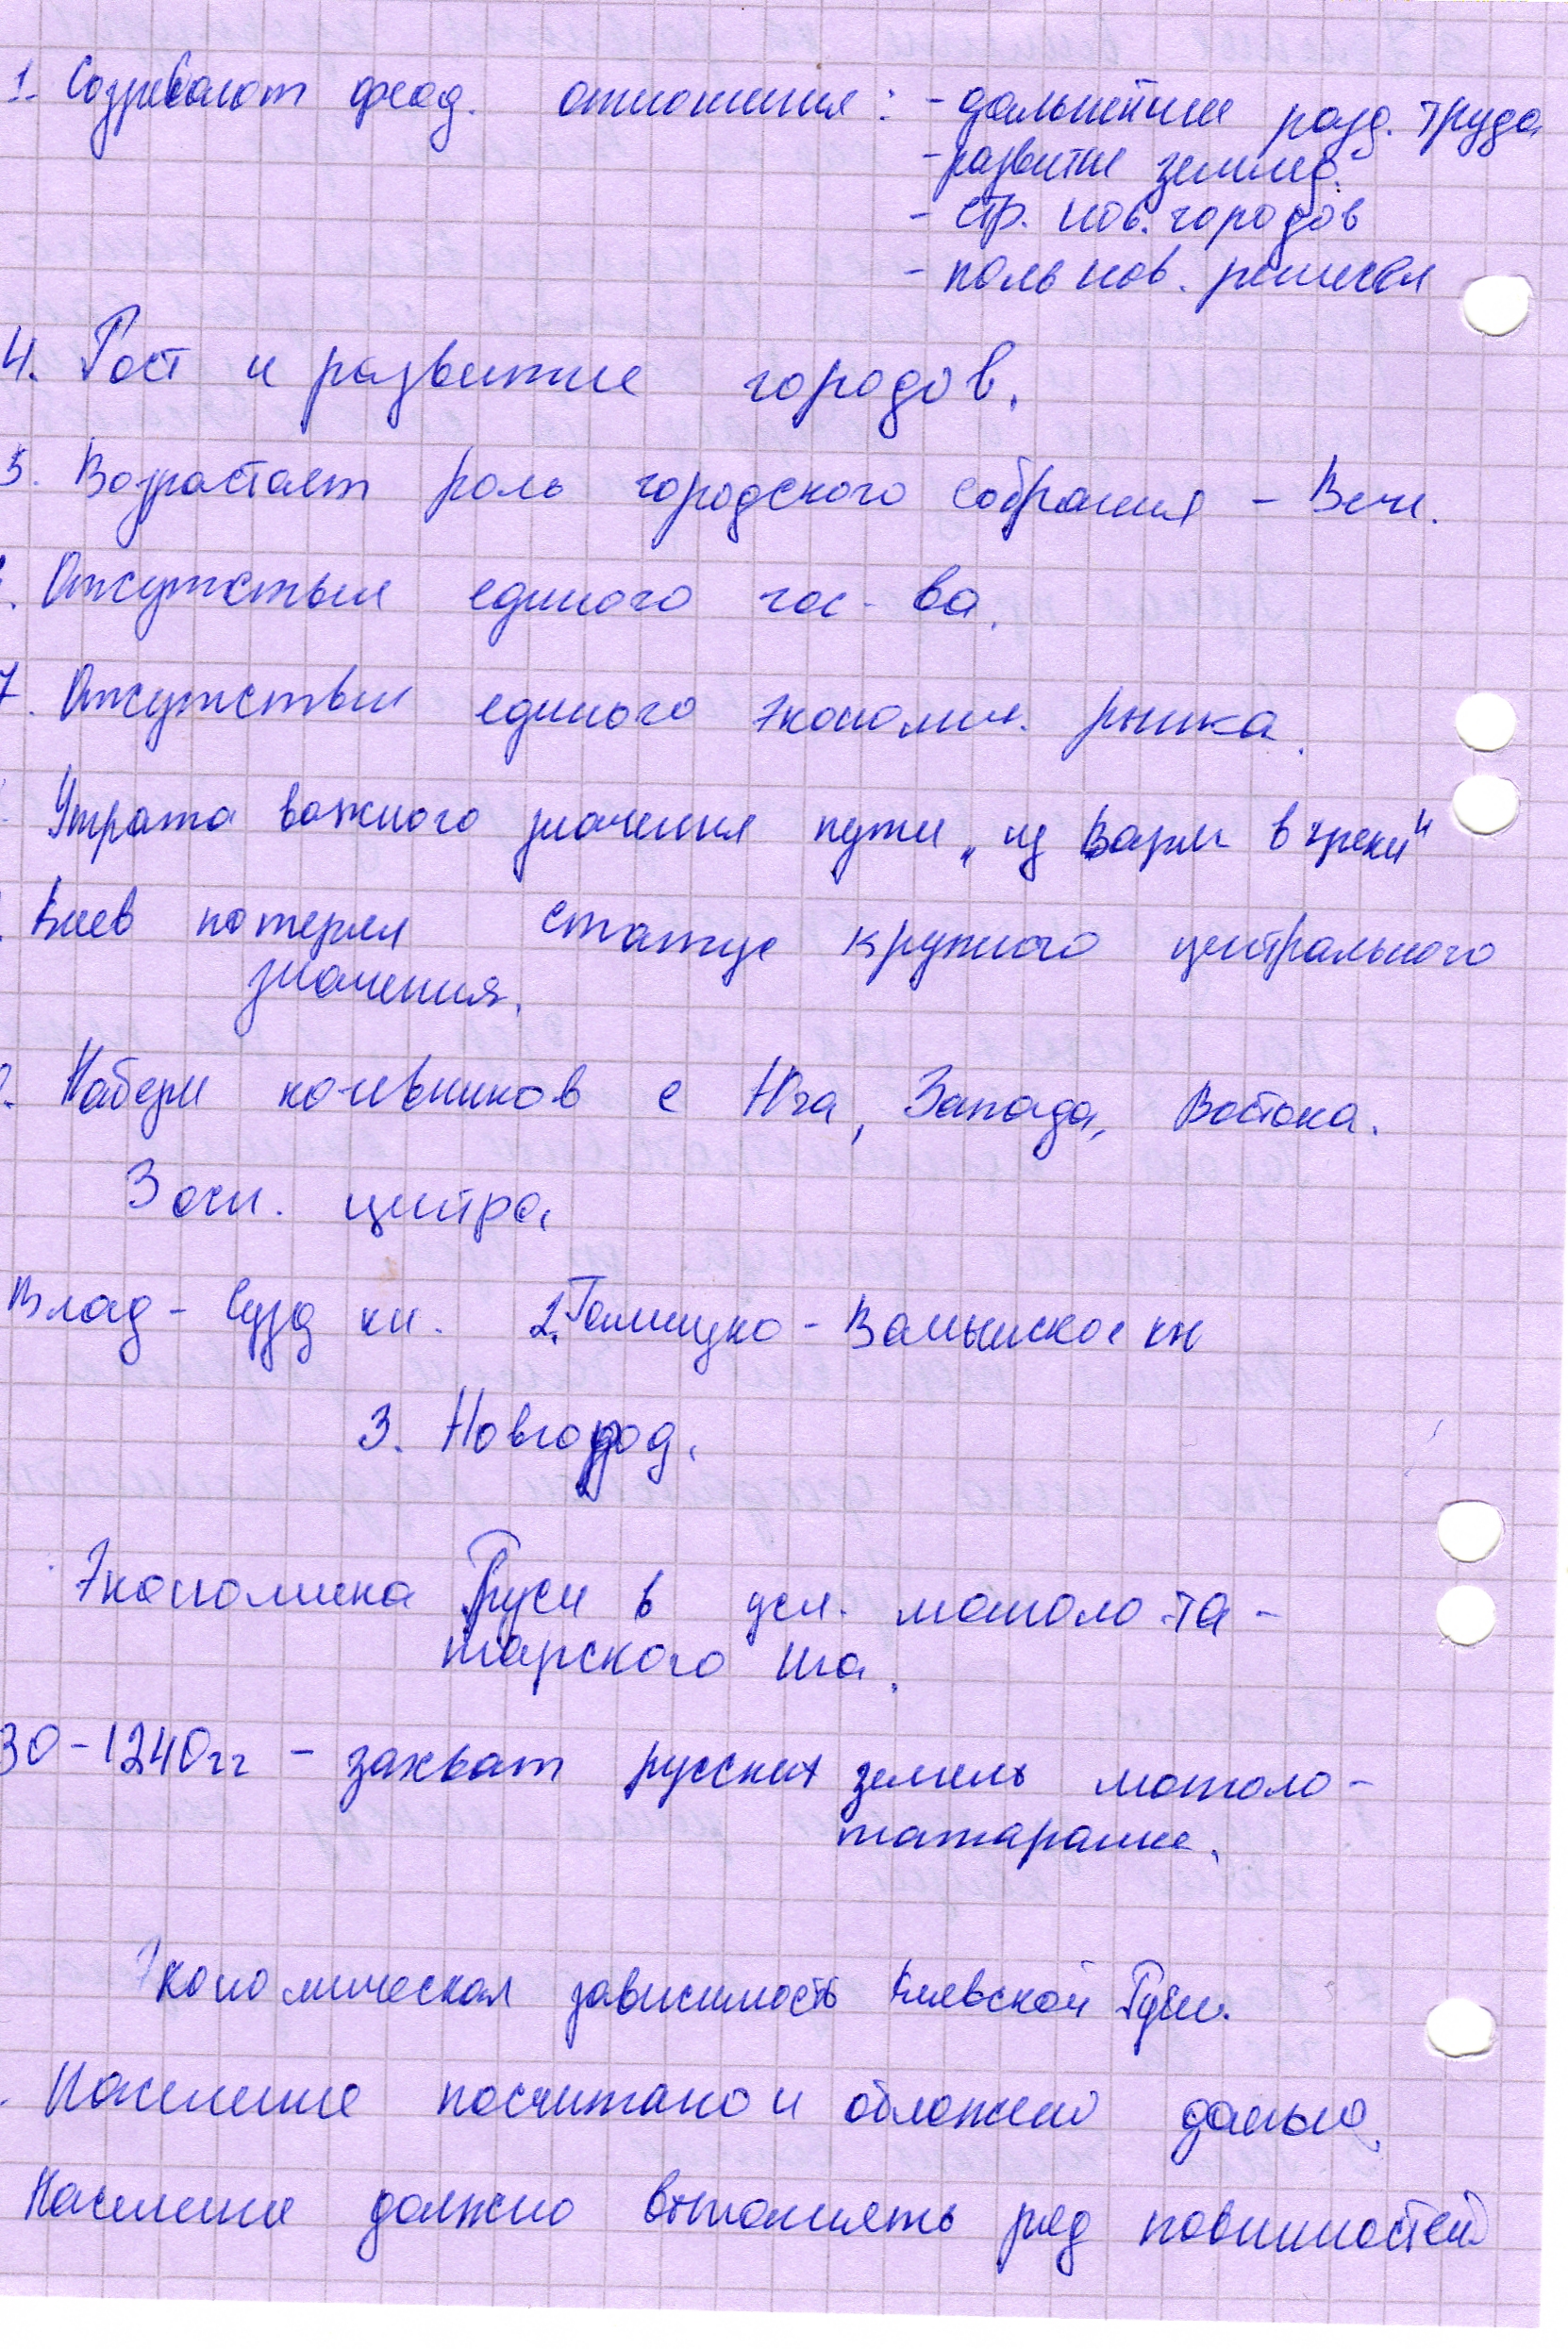 1. Созревают феод. отношения: - дальнейшее разд. труда
- развитие землед.
- стр. нов. городов
- появ нов. ремесел
4. Рост и развитие городов.
5. Возрастает роль городского собрания - Вече.
. Отсутствие единого гос-ва.
7. Отсутствие единого экономич. рынка.
Утрата важного значения пути "из Варяг в греки"
. Киев потерял статус крупного центрального
значения.
. Набеги кочевников с Юга, Запада, Востока.
3 осн. центра.
Влад-Сузд кн. 2. Галицко-Волынское кн
3. Новгород.
Экономика Руси в усл. монголо-та-
тарского ига.
30-1240гг - захват русских земель монголо-
татарами.
Экономическая зависимость Киевской Руси.
. Население посчитано и обложено данью.
Население должно выполнять ряд повинностей